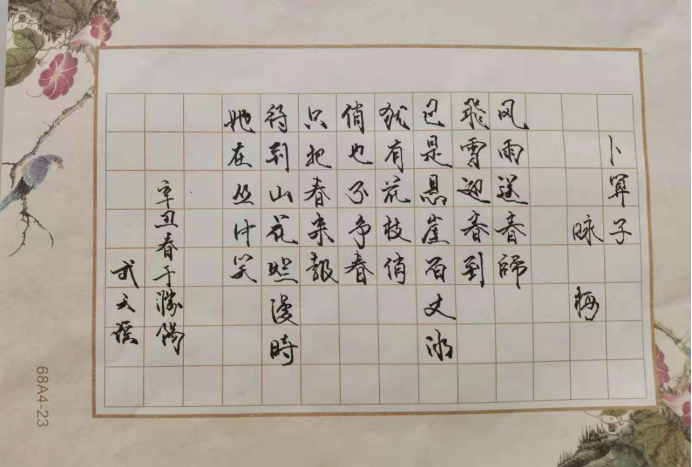 卜算子
咏梅
风雨送春歸
飛雪迎春到
已是悬崖百丈冰
犹有花枝俏
俏也不争春
只把春来報
待到山花爛漫時
她在丛中笑
辛丑春于滕陽
武
68A4-23